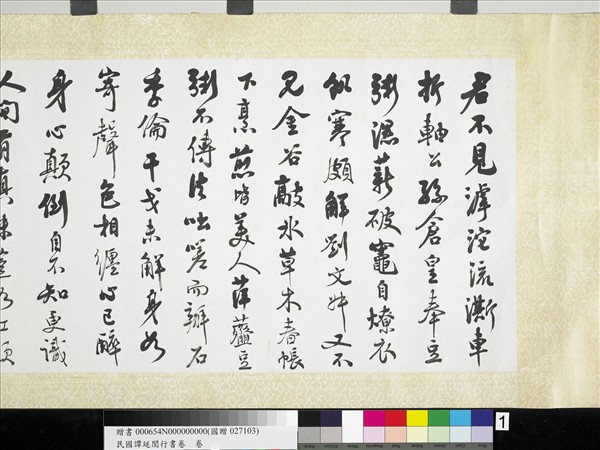 君不見滹沱流澌車
折軸公孫倉皇奉豆
粥濕薪破竈自燎衣
飢寒頓解劉文叔又不
見金谷敲冰草木春帳
下烹煎皆美人萍虀豆
粥不傳法咄嗟而辦石
季倫干戈未解身如
寄聲色相纏心已醉
身心顛倒自不知更識
人間有真味豈如江頭
贈書 000654N000000000(國贈 027103)
民國譚延闓行書卷 卷
1